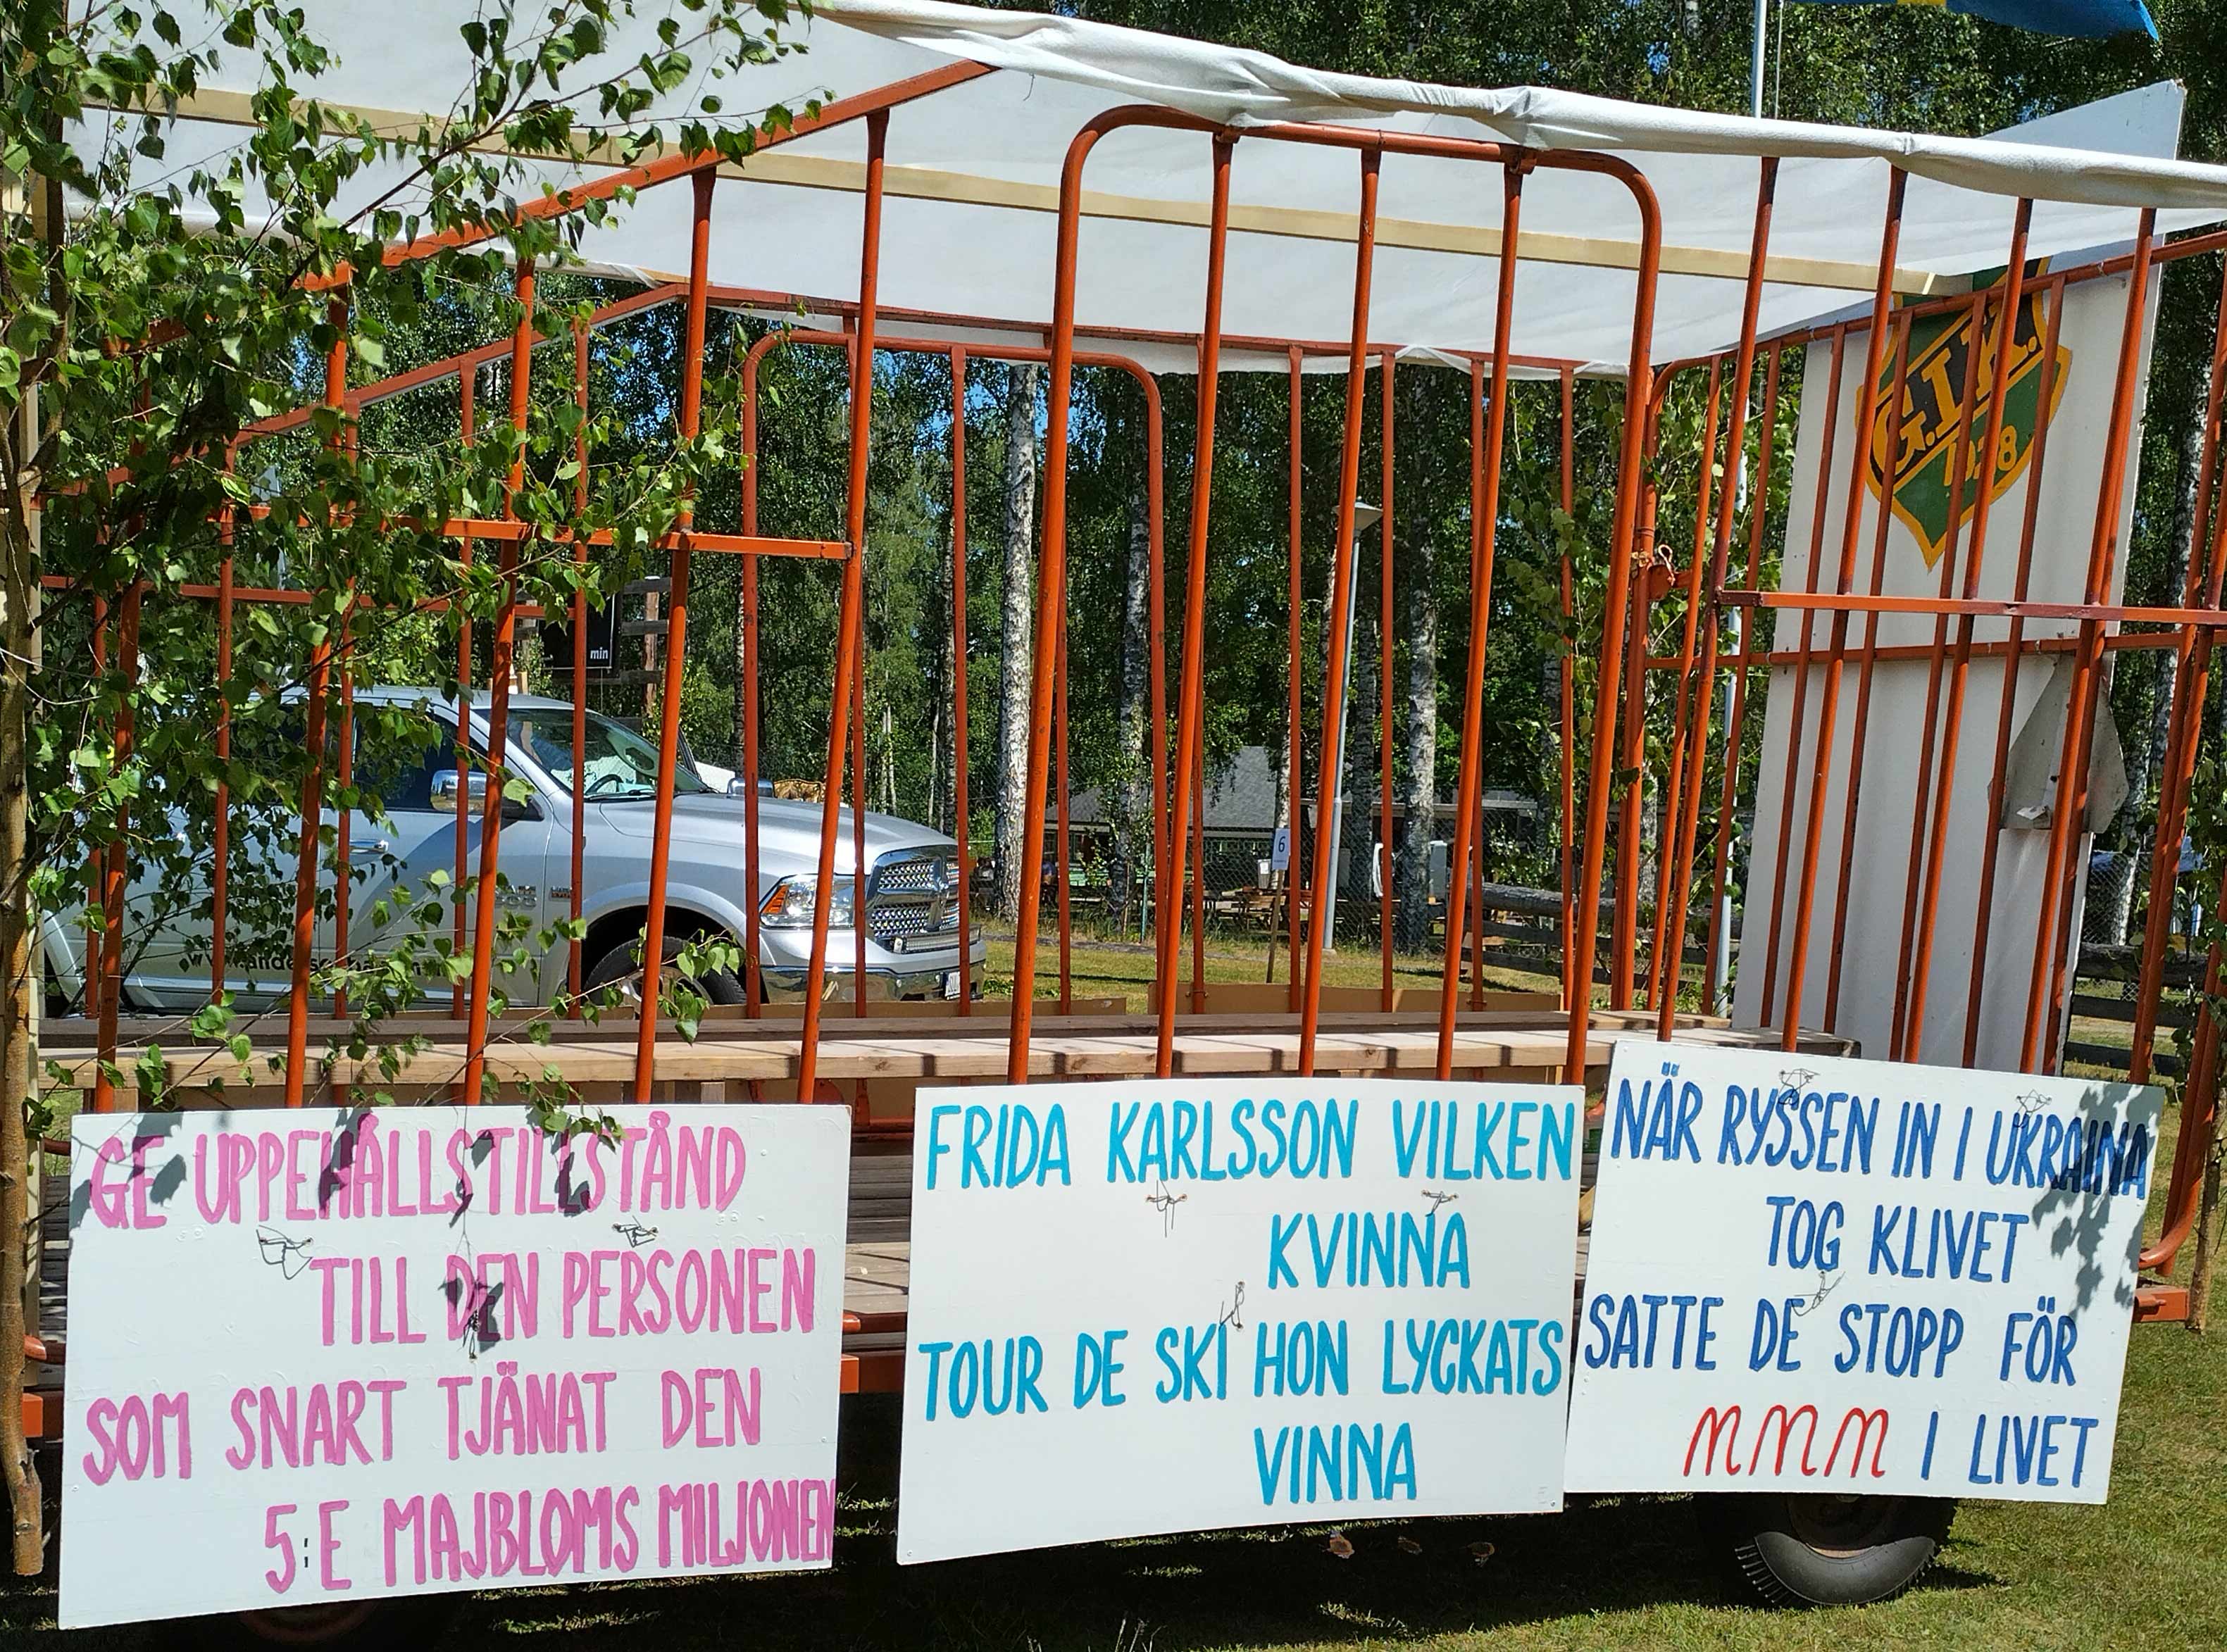 G.I.K.
min
6
GE UPPEHÅLLSTILLSTÅND
TILL DEN PERSONEN
SOM SNART TJÄNAT DEN
5:E MAJBLOMS MILJONEN
FRIDA KARLSSON VILKEN
KVINNA
TOUR DE SKI HON LYCKATS
VINNA
NÄR RYSSEN IN I UKRAINA
TOG KLIVET
SATTE DE STOPP FÖR
MMM I LIVET